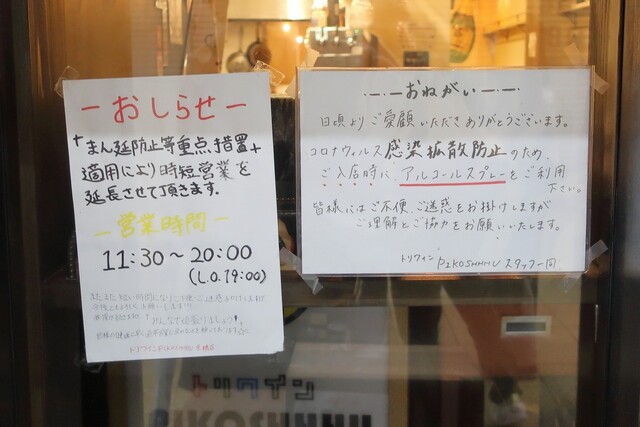 ーおしらせー
まん延防止等重点措置
適用により時短営業を
延長させて頂きます。
ー営業時間ー
11:30〜20:00
(L.O.19:00)
みんなで頑張りましょう!
ーおねがいー
日頃よりご愛顧いただきありがとうございます。
コロナウィルス感染拡散防止のため、
ご入店時にアルコールスプレーをご利用
下さい。
皆様にはご不便、ご迷惑をお掛けしますが
ご理解とご協力をお願いいたします。
トリワイン PIKOSHHHU スタッフ一同
トリワイン
PIKOSHHHU